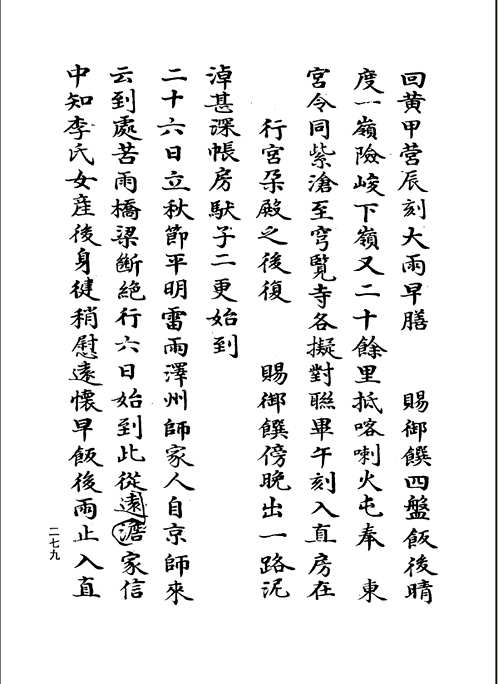 回黃甲營辰刻大雨早膳　賜御饌四盤飯後晴
度一嶺險峻下嶺又二十餘里抵喀喇火屯奉　東
宮令同紫滄至穹覽寺各擬對聯畢午刻入直房在
行宮朶殿之後復　賜御饌傍晚出一路泥
淖甚深帳房馱子二更始到
二十六日立秋節平明雷雨澤州師家人自京師來
云到處苦雨橋梁斷絕行六日始到此從遠澹家信
中知李氏女產後身健稍慰遠懷早飯後雨止入直
二七九